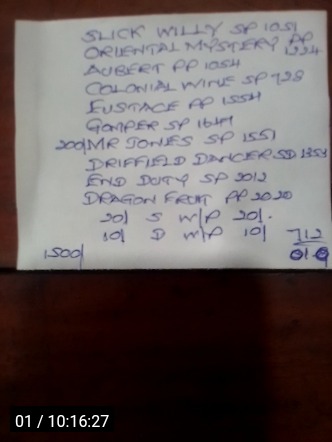 SLICK WILLY SP 1051
ORIENTAL MYSTERY PP 1224
AUBERT PP 1054
COLONIAL WINE SP 728
EUSTACE PP 1554
GOMPER SP 1647
200/ MR JONES SP 1551
DRIFFIELD DANCER SD 1353
END DUTY SP 2012
DRAGON FRUIT PP 2020
20/ S W/P 20/.
10/ D W/P 10/ 712
1500/
01 / 10:16:27